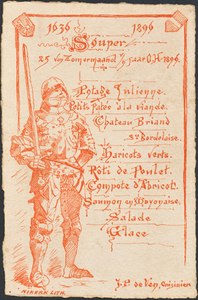 1636 1896
Souper
25 van Zomermaand 's jaar O.H. 1896.
Potage Julienne.
Petits Patés à la Viande.
Chateau Briand
Sce Bordelaise.
Haricots verts.
Rôti de Poulet.
Compote d'Abricot.
Saumon en Mayonaise.
Salade
Glace
J.P. de Ven, Cuisinier
NIKERK LITH.